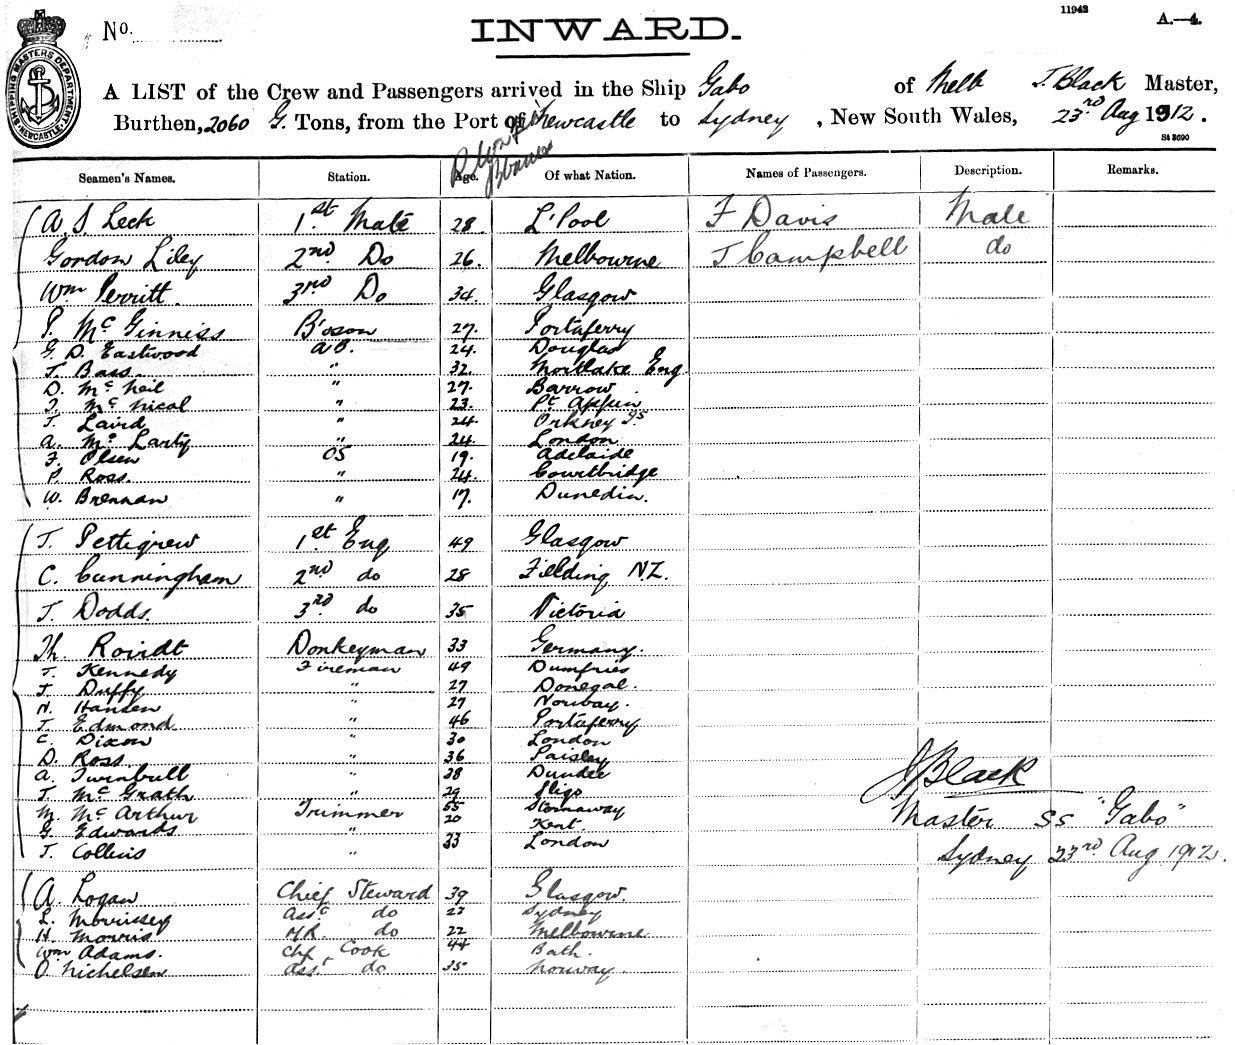 11942
A.—4.
No.
INWARD.
SHIPPING MASTERS DEPARTMENT NEWCASTLE
A LIST of the Crew and Passengers arrived in the Ship Gabo of Melb J. Black Master,
Burthen, 2060 G. Tons, from the Port of Newcastle to Sydney, New South Wales, 23rd Aug 1912.
St 3690
Seamen's Names. Station. Age. Of what Nation. Names of Passengers. Description. Remarks.
A. S. Leck 1st Mate 28. L'Pool F Davis Male
Gordon Liley 2nd Do 26. Melbourne J Campbell do
Wm Perritt. 3rd Do 34. Glasgow
P. McGinniss B'oson 27. Portaferry
G. D. Eastwood AB. 24. Douglas
T. Bass. " 32. Mortlake Eng.
D. McNeil " 27. Barrow
J. McNicol " 23. Pt Appin
J. Laird " 24. Orkney Is
A. McLarty " 24 London
F. Olsen OS 19. Adelaide
P. Ross. " 24. Courtbridge
W. Brennan " 17. Dunedin.
T. Pettigrew 1st Eng 49 Glasgow
C. Cunningham 2nd do 28 Fielding NZ.
T. Dodds. 3rd do 35 Victoria
Th Roindt Donkeyman 33 Germany.
T. Kennedy Fireman 49 Dumfries
J. Duffy " 27 Donegal.
N. Hansen " 27 Norway.
T. Edmond " 46 Portaferry
C. Dixon " 30 London
D. Ross. " 36 Paisley
A. Turnbull " 38 Dundee
T. McGrath " 29 Sligo
M. McArthur Trimmer 55 Stornaway
G. Edwards " 20 Kent.
J. Collins " 33 London
J Black
Master SS "Gabo"
Sydney 23rd Aug 1912.
A. Logan Chief Steward 39 Glasgow.
L. Morrissey Asst do 22 Sydney
H. Morris MR. do 22 Melbourne
Wm Adams. Chf Cook 44 Bath.
O. Nichelsen Asst do 35 Norway.